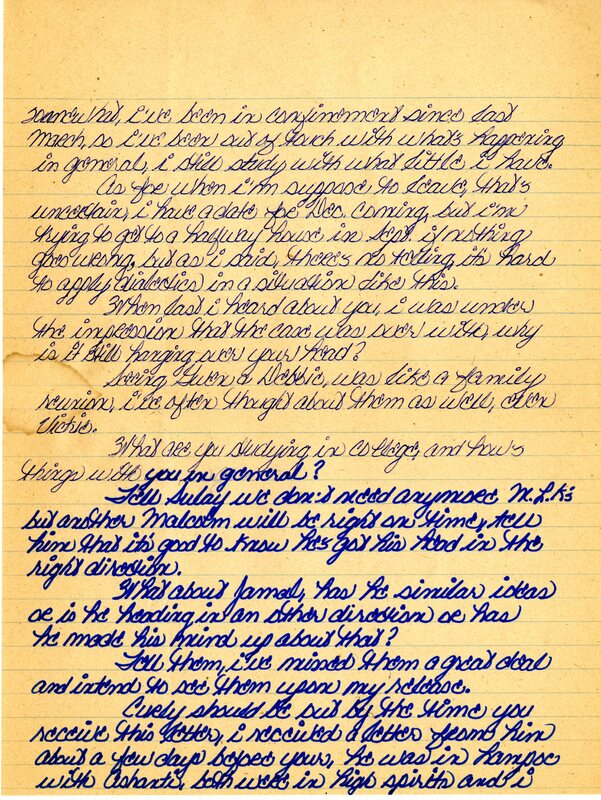 somewhat, i've been in confinement since last
march, so i've been out of touch with what's happening
in general, i still study with what little i have.
As for when i'm suppose to leave, that's
uncertain, i have a date for Dec. coming, but i'm
trying to get to a halfway house in Sept. if nothing
goes wrong, but as i said, there's no telling, it's hard
to apply dialectics in a situation like this.
When last i heard about you, i was under
the impression that the case was over with, why
is it still hanging over your head?
Seeing Gwen & Debbie, was like a family
reunion, i've often thought about them as well, even
Vickie.
What are you studying in college, and how's
things with you in general?
Tell we don't need anymore M.L.K's
but another Malcolm will be right on time, tell
him that it's good to know he's got his head in the
right direction.
What about Jamal, has he similar ideas
or is he heading in an other direction or has
he made his mind up about that?
Tell them, i've missed them a great deal
and intend to see them upon my release.
Curly should be out by the time you
receive this letter, i received a letter from him
about a few days before your, he was in
with Ashanti, both were in high spirits and i